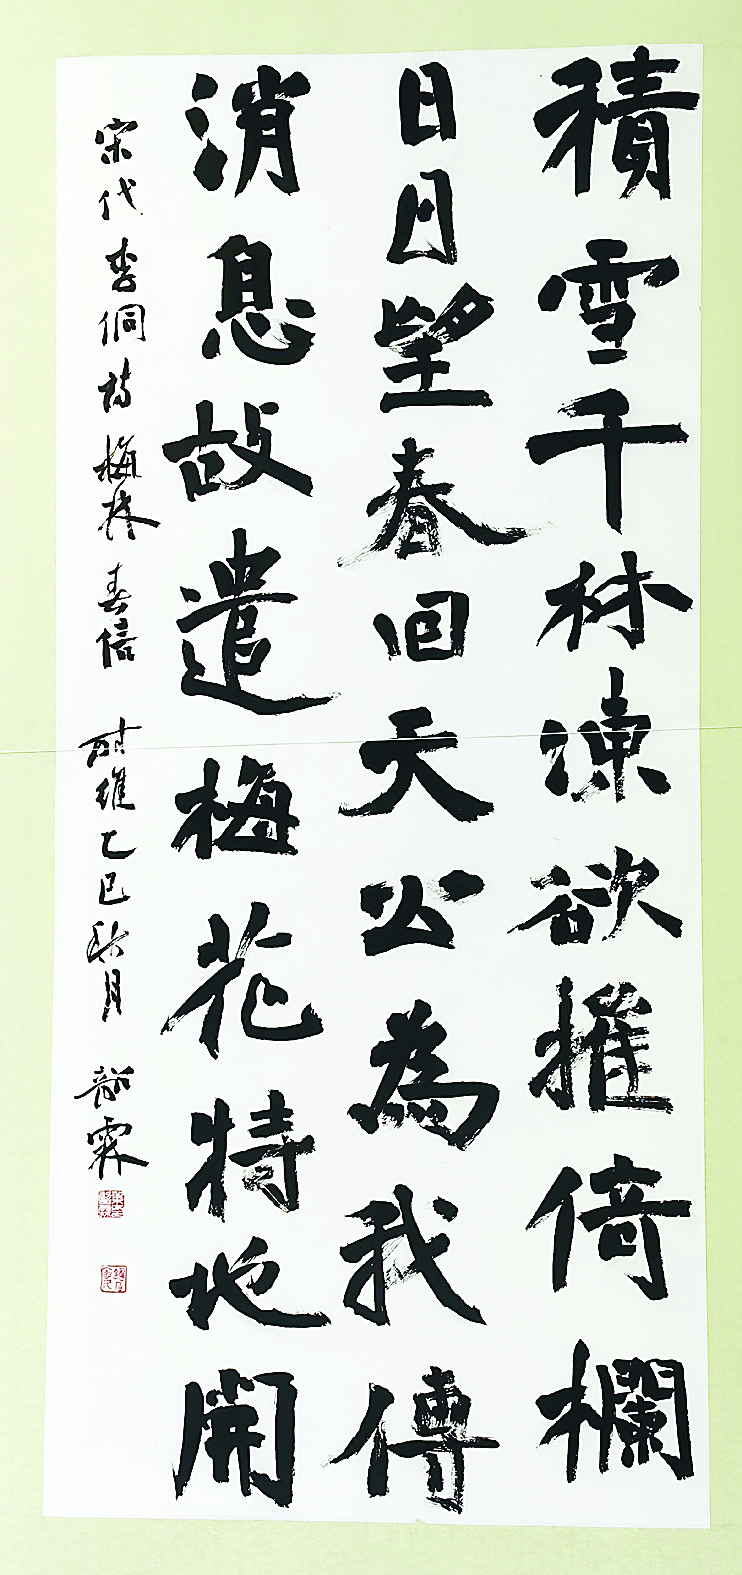 積雪千林凍欲摧倚欄
日日望春回天公為我傳
消息故遣梅花特地開
宋代李侗诗梅林春信 时維乙巳秋月 韶霖